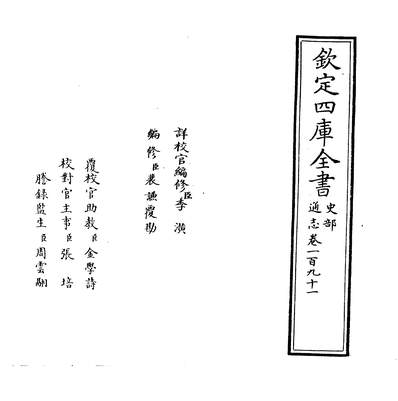 欽定四庫全書
史部
通志卷一百九十一
詳校官編修臣李潢
編修臣裴謙覆勘
覆校官助教臣金學詩
校對官主事臣張培
謄錄監生臣周雲翮